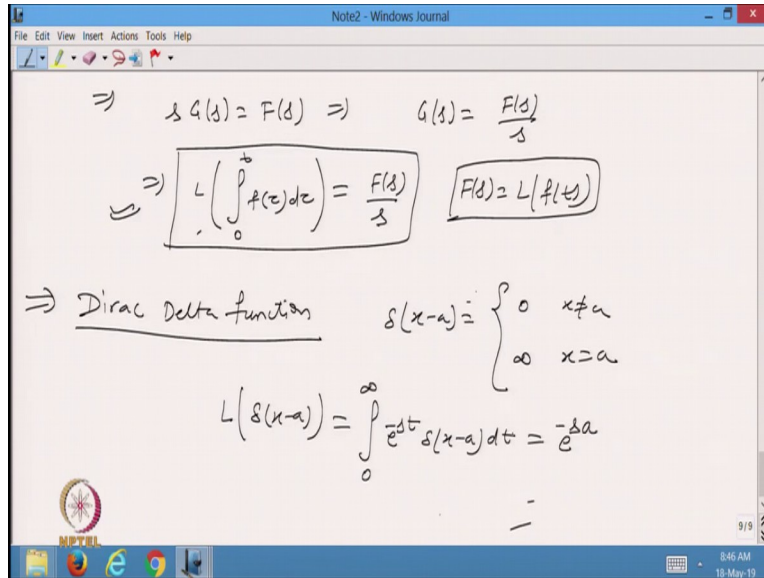 Note2 - Windows Journal
File Edit View Insert Actions Tools Help
⇒ s G(s) = F(s) ⇒ G(s) = F(s)/s
⇒ L(∫₀ᵗ f(τ)dτ) = F(s)/s F(s) = L(f(t))
⇒ Dirac Delta function δ(x-a) = { 0 x≠a
∞ x=a
L(δ(x-a)) = ∫₀^∞ e^{-st} δ(x-a) dt = e^{-sa}
NPTEL
9/9
8:46 AM
18-May-19